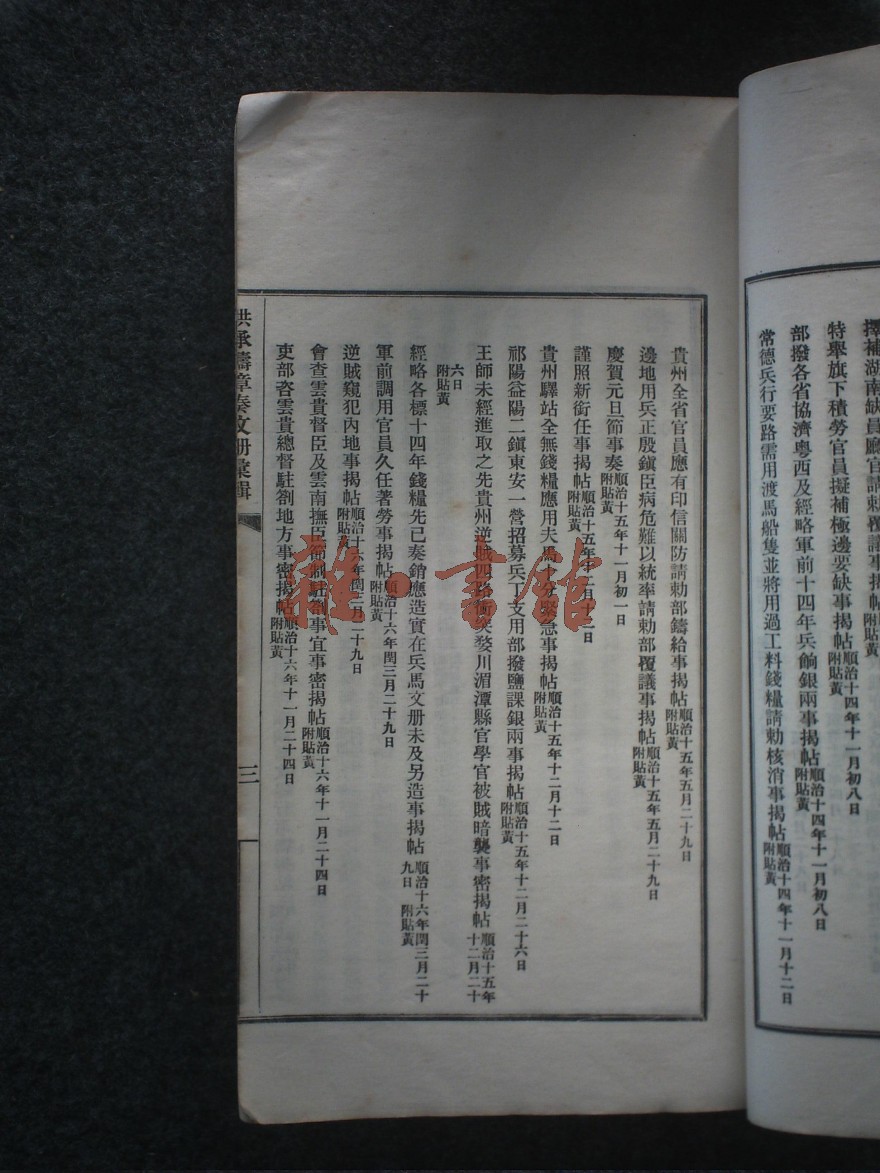 擇補湖南缺員
特舉旗下積勞官員擬補極邊要缺事揭帖順治十四年十一月初八日附貼黃
部撥各省協濟粵西及經略軍前十四年兵餉銀兩事揭帖順治十四年十一月初八日附貼黃
常德兵行要路需用渡馬船隻並將用過工料錢糧請勅核消事揭帖順治十四年十一月十二日附貼黃
貴州全省官員應有印信關防請勅部鑄給事揭帖順治十五年五月二十九日附貼黃
邊地用兵正殷鎮臣病危難以統率請勅部覆議事揭帖順治十五年五月二十九日附貼黃
慶賀元旦節事奏順治十五年十一月初一日附貼黃
謹照新銜任事揭帖順治十五年十二月十二日附貼黃
貴州驛站全無錢糧應用夫馬十分緊急事揭帖順治十五年十二月十二日附貼黃
祁陽益陽二鎮東安一營招募兵丁支用部撥鹽課銀兩事揭帖順治十五年十二月二十六日附貼黃
王師未經進取之先貴州逆賊四路衝突婺川湄潭縣官學官被賊暗襲事密揭帖順治十五年十二月二十
六日附貼黃
經略各標十四年錢糧先已奏銷應造實在兵馬文册未及另造事揭帖順治十六年閏三月二十九日附貼黃
軍前調用官員久任著勞事揭帖順治十六年閏三月二十九日附貼黃
逆賊窺犯內地事揭帖順治十六年閏三月二十九日附貼黃
會查雲貴督臣及雲南撫臣節制駐劄事宜事密揭帖順治十六年十一月二十四日附貼黃
吏部咨雲貴總督駐劄地方事密揭帖順治十六年十一月二十四日附貼黃
洪承疇章奏文册彙輯
三
雜·書館